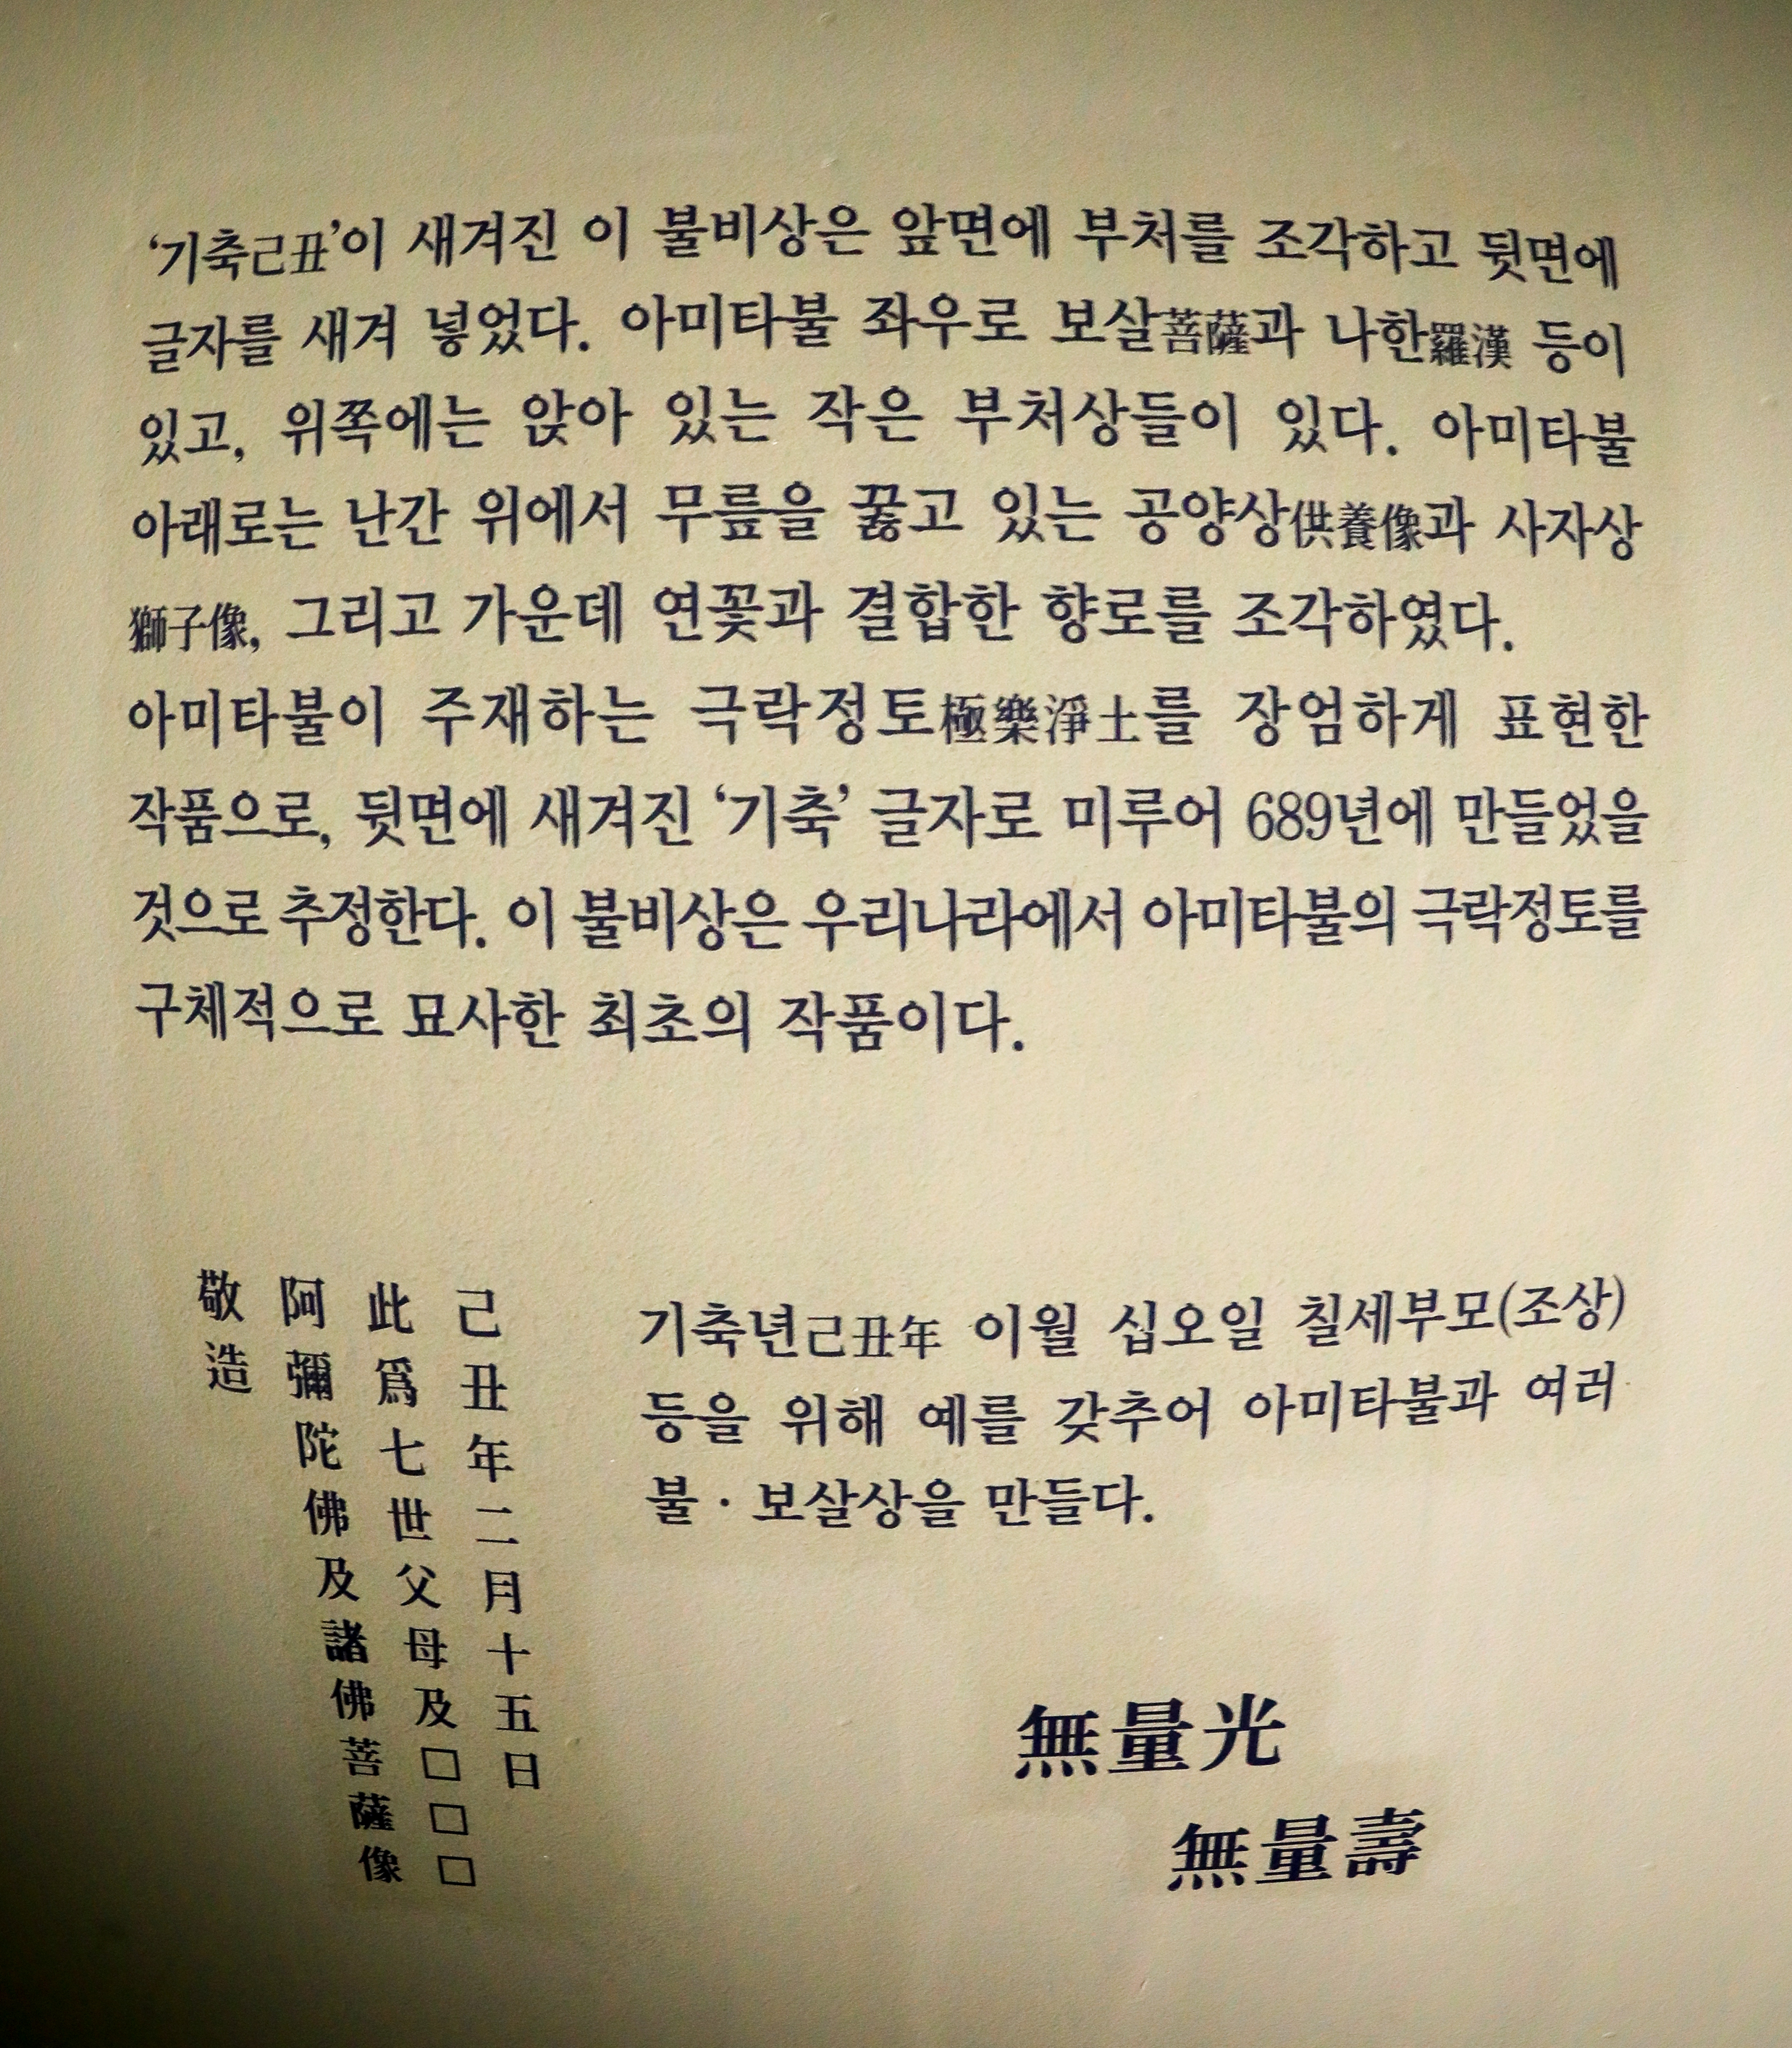 ‘기축己丑’이 새겨진 이 불비상은 앞면에 부처를 조각하고 뒷면에
글자를 새겨 넣었다. 아미타불 좌우로 보살菩薩과 나한羅漢 등이
있고, 위쪽에는 앉아 있는 작은 부처상들이 있다. 아미타불
아래로는 난간 위에서 무릎을 꿇고 있는 공양상供養像과 사자상
獅子像, 그리고 가운데 연꽃과 결합한 향로를 조각하였다.
아미타불이 주재하는 극락정토極樂淨土를 장엄하게 표현한
작품으로, 뒷면에 새겨진 ‘기축’ 글자로 미루어 689년에 만들었을
것으로 추정한다. 이 불비상은 우리나라에서 아미타불의 극락정토를
구체적으로 묘사한 최초의 작품이다.
己丑年二月十五日
此爲七世父母及□□□
阿彌陀佛及諸佛菩薩像
敬造
기축년己丑年 이월 십오일 칠세부모(조상)
등을 위해 예를 갖추어 아미타불과 여러
불·보살상을 만들다.
無量光
無量壽